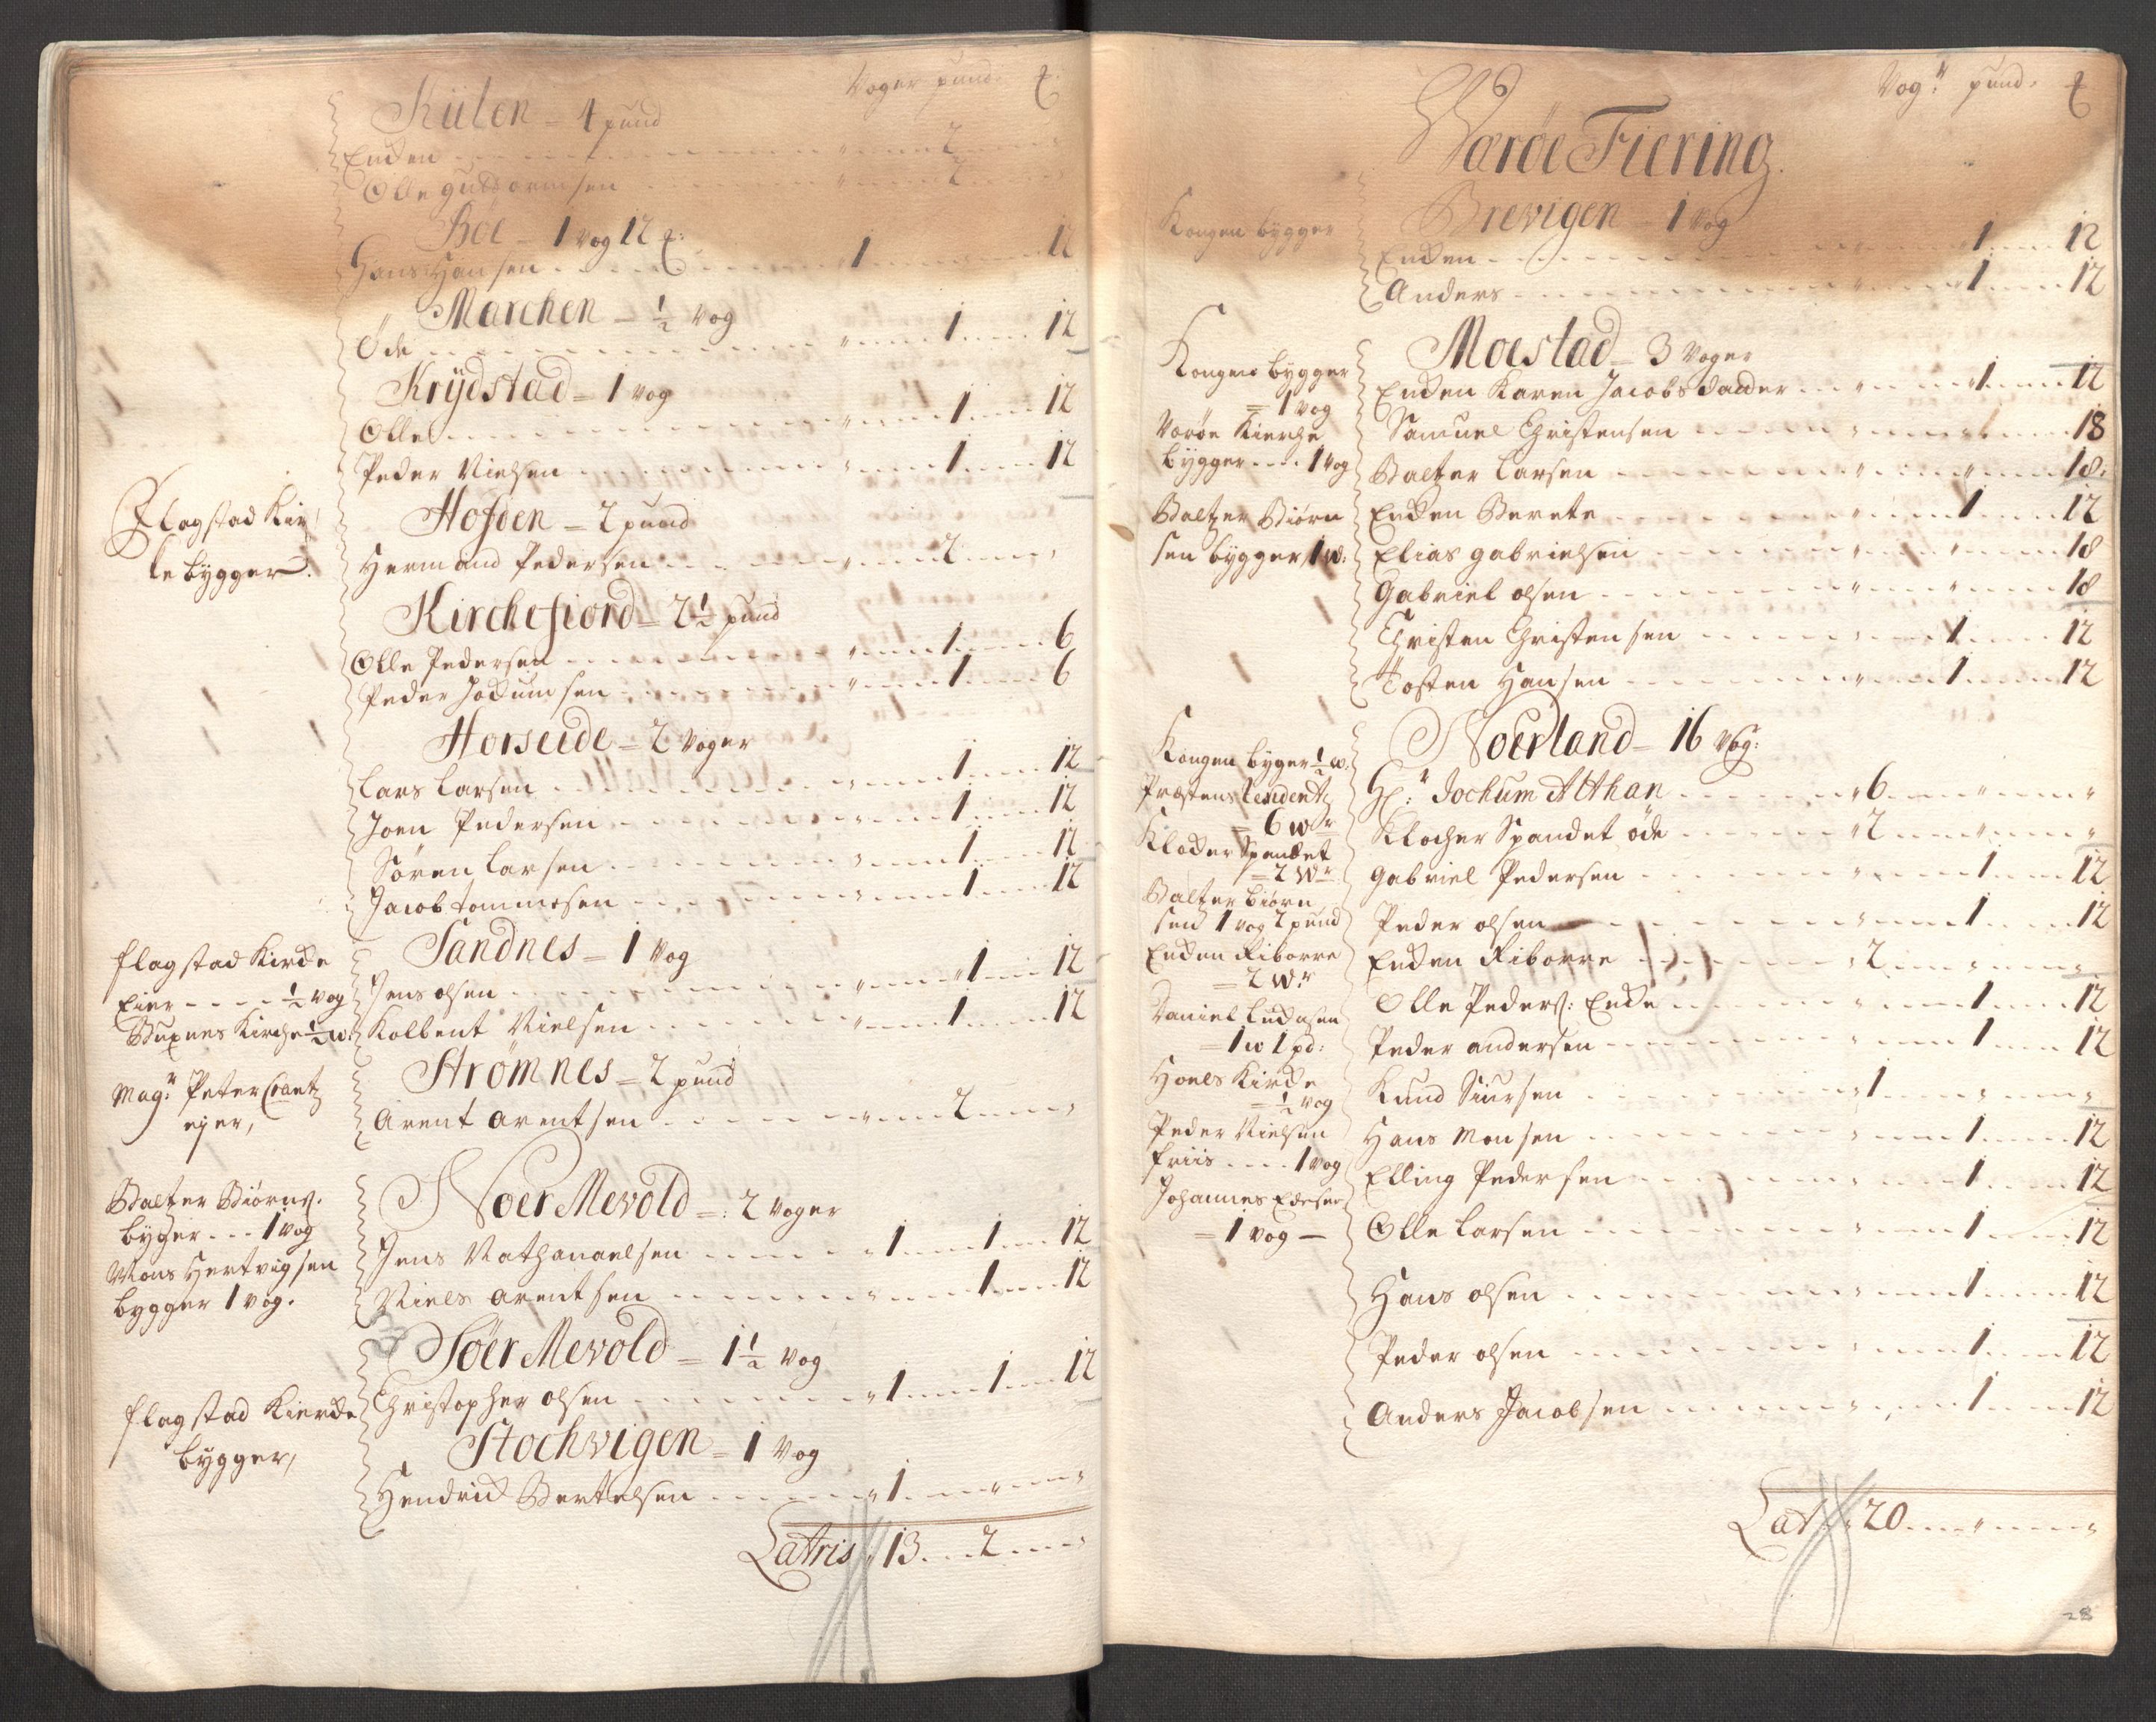 Voger pund. ℔.
Kiilen = 4 pund
Encken - - - " - - 2 - - "
Olle Guttormsen - - - " - - 2 - - "
Böe - 1 Vog 12 ℔:
Hans Hansen - - - 1 - - - 12
Marchen - ½ Vog
Öde - - - " - - 1 - - 12
Krÿdstad = 1 Vog
Olle - - - " - - 1 - - 12
Peder Nielsen - - - " - - 1 - - 12
Flagstad Kir
ke bÿgger.
Hofden = 2 pund
Hermand Pedersen - - - " - - 2 - - "
Kirchefiord = 2½ pund
Olle Pedersen - - - " - - 1 - - 6
Peder Jochumsen - - - " - - 1 - - 6
Horseide = 2 Voger
Lars Larsen - - - " - - 1 - - 12
Joen Pedersen - - - " - - 1 - - 12
Sören Larsen - - - " - - 1 - - 12
Jacob Tommesen - - - " - - 1 - - 12
Flagstad Kircke
Eier - - - ½ Vog
Buxnes Kirche ½ w:
Sandnes = 1 Vog
Jens olsen - - - " - - 1 - - 12
Kolbent Nielsen - - - " - - 1 - - 12
Magr: Peter Crantz
ejer,
Strömnes = 2 pund
Arent Arentsen - - - " - - 2 - - "
Baltzer Biörns.
bÿger - - - 1 Vog
Mons Hertvigsen
bygger 1 Vog.
Noer Mevold = 2 Voger
Jens Nathanaelsen - - - " 1 - - 1 - - 12
Niels Arentsen - - - " - - 1 - - 12
Söer Mevold = 1½ Vog
Christopher olsen - - - " 1 - - 1 - - 12
Flagstad Kiercke
bÿgger,
Stochvigen = 1 Vog
Hendrick Bertelsen - - - " 1 - - " - - "
Latris " 13 - - 2 - - "
Vogr: pund. ℔
Waröe Fiering.
Kongen bÿgger
Brevigen = 1 Vog
Encken - - - " - - 1 - - 12
Anders - - - " - - 1 - - 12
Kongen bÿgger
= 1 Vog
Waröe Kierche
bÿgger - - - 1 Vog
Baltzer Biörn
sen bÿgger 1 w:
Moestad = 3 Voger
Encken Karen Jacobsdaatter - - - " - - 1 - - 12
Samuel Christensen - - - " - - " - - 18
Baltzer Larsen - - - " - - " - - 18.
Encken Berete - - - " - - 1 - - 12
Elias Gabrielsen - - - " - - " - - 18
Gabriel olsen - - - " - - " - - 18
Christen Christensen - - - " - - 1 - - 12
Tosten Hansen - - - " - - 1 - - 12
Kongen byger ½ w:
Præstens Residentz
= 6 Wr
Klocker Spandet
= 2 Wr
Baltzer Biörn
sen 1 Vog 2 pund
Encken Riborre
= 2 Wr
Daniel Ludvsen
= 1 w 1 pd:
Hoels Kircke
= ½ Vog
Peder Nielsen
Friis - - - 1 Vog
Johannes Edesen
= 1 Vog -
Noerland = 16 Vog:
Hr: Jochum Atthan - - - " 6 - - " - - "
Klocher Spandet öde - - - " 2 - - " - - "
Gabriel Pedersen - - - " - - 1 - - 12
Peder olsen - - - " - - 1 - - 12
Encken Riborre - - - " 2 - - " - - "
Olle Peders: Encke - - - " - - 1 - - 12
Peder Andersen - - - " - - 1 - - 12
Knud Siursen - - - " 1 - - " - - "
Hans Monsen - - - " - - 1 - - 12
Elling Pedersen - - - " - - 1 - - 12
Olle Larsen - - - " - - 1 - - 12
Hans olsen - - - " - - 1 - - 12
Peder olsen - - - " - - 1 - - 12
Anders Jacobsen - - - " - - 1 - - 12
Lat " 20 - - " - - "
28